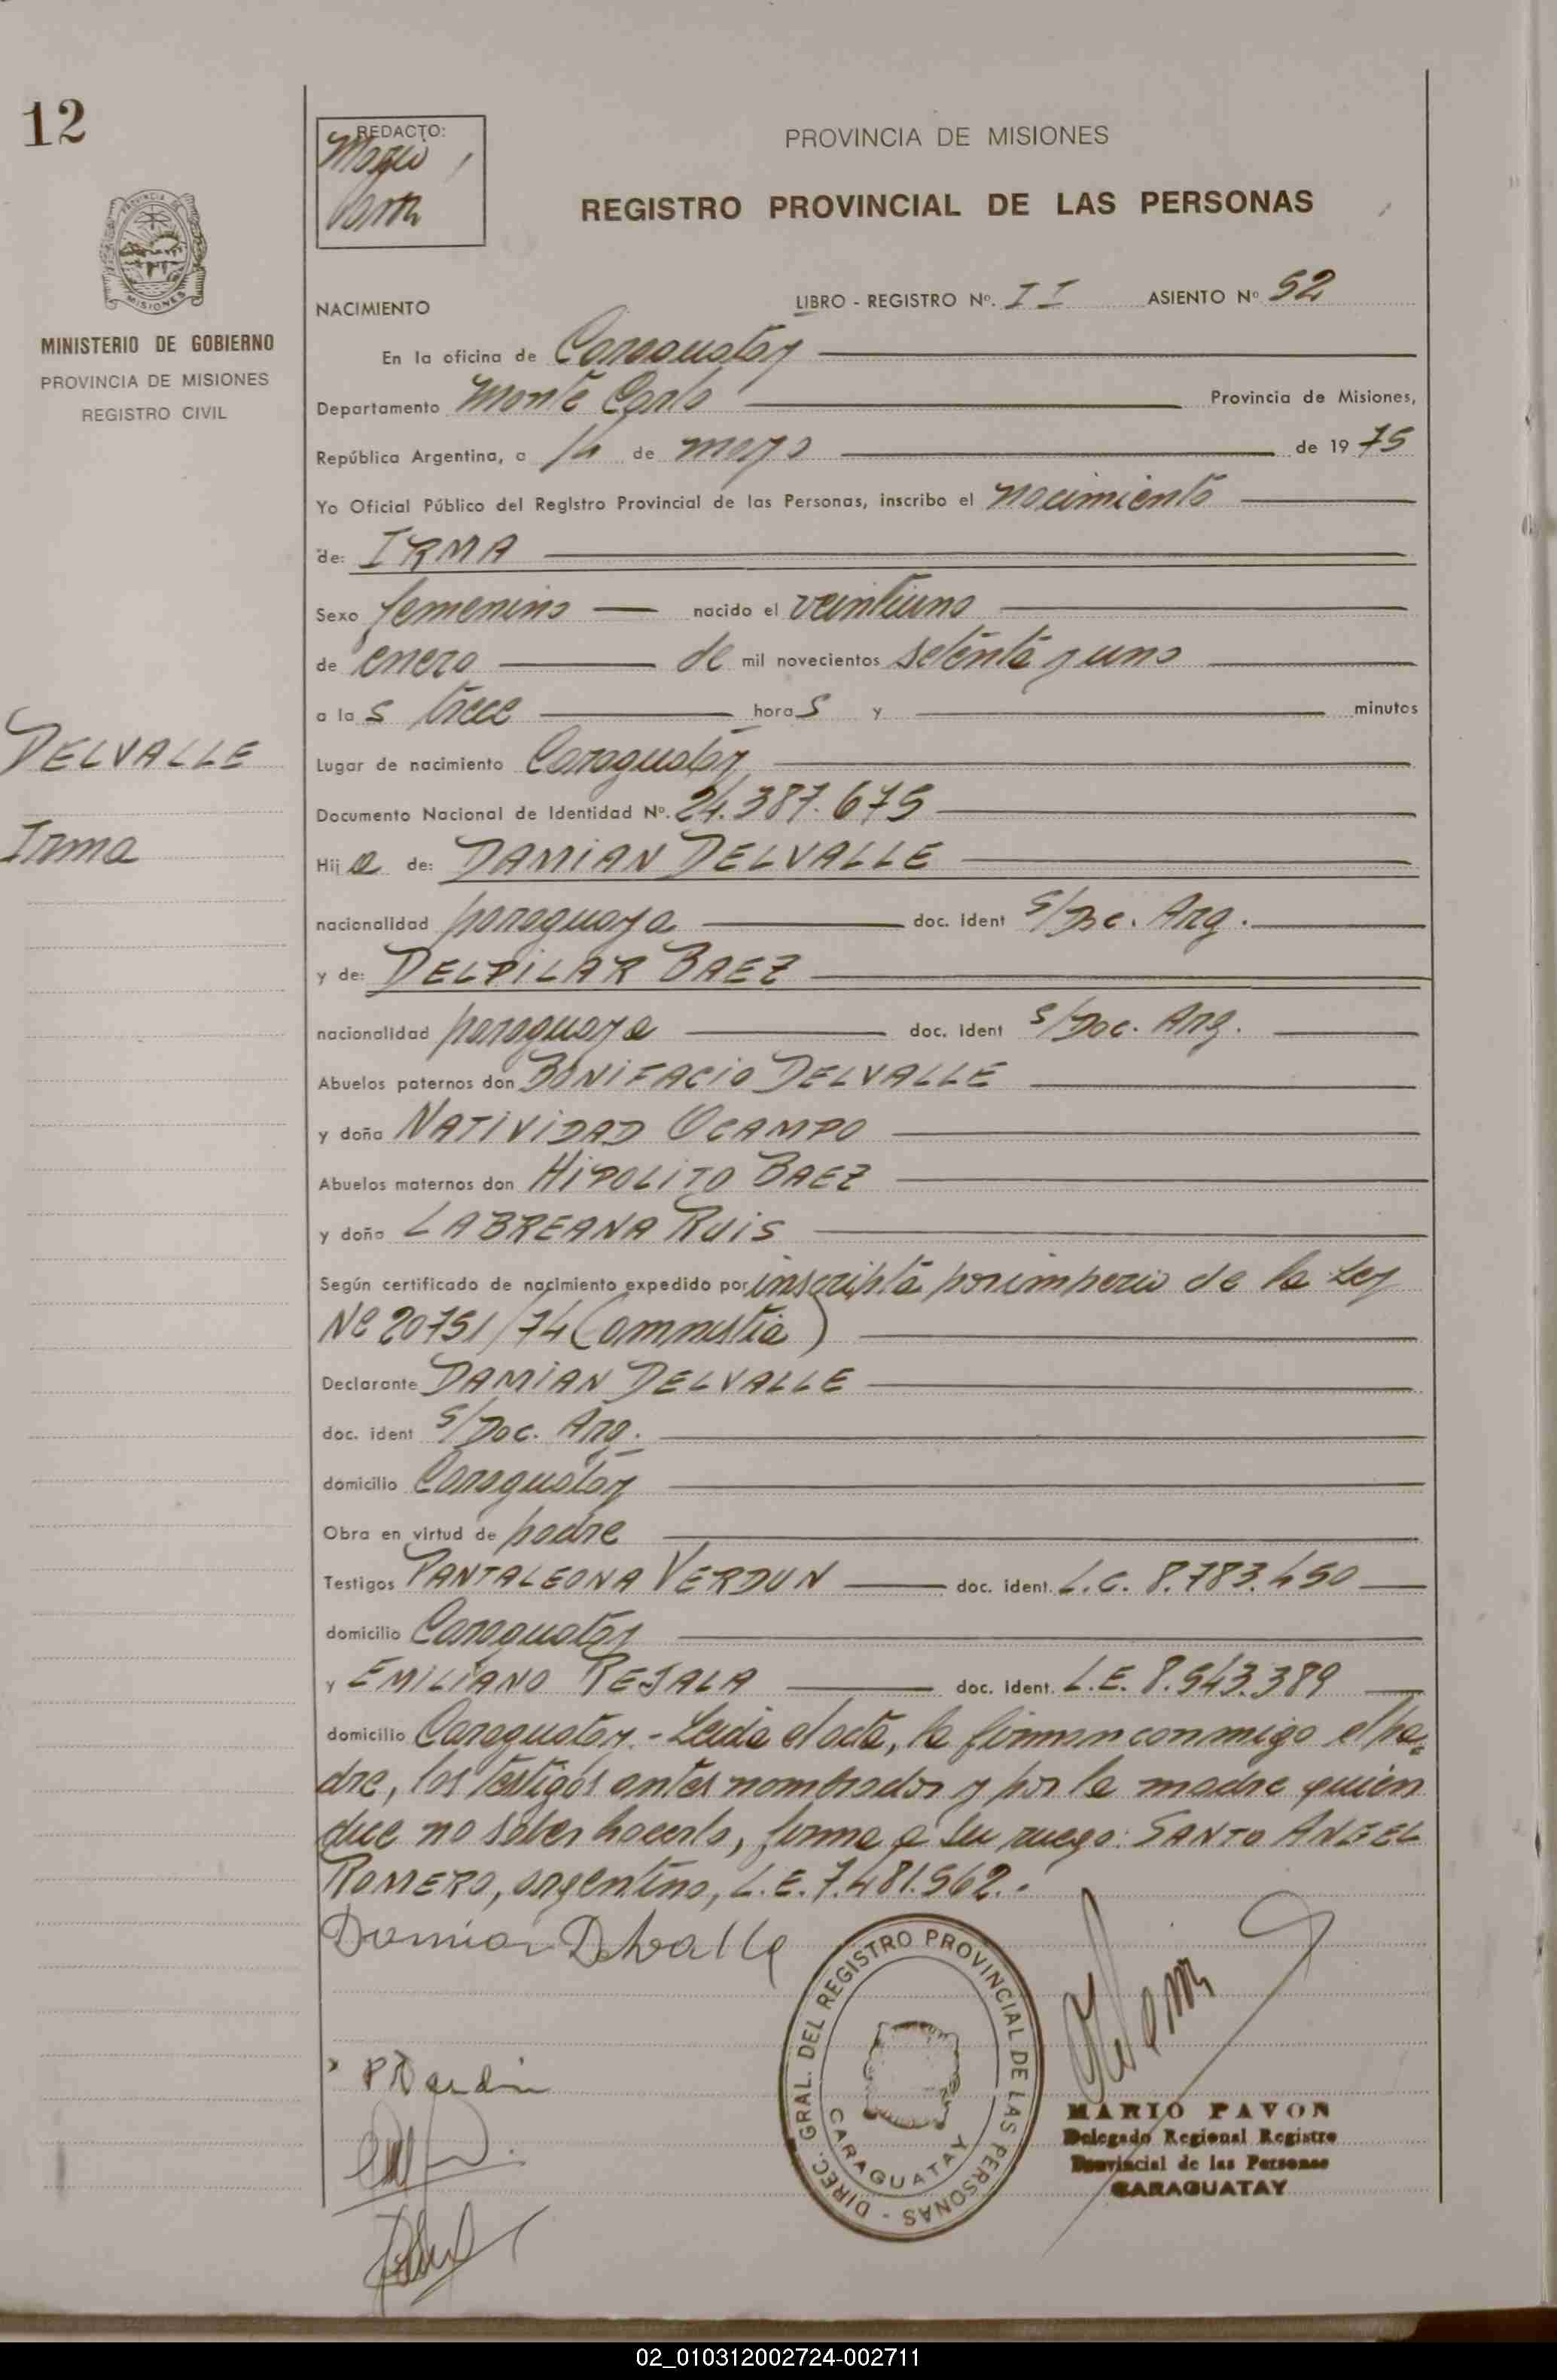 12
REDACTO:
PROVINCIA DE MISIONES
REGISTRO PROVINCIAL DE LAS PERSONAS
PROVINCIA DE
MISIONES
MINISTERIO DE GOBIERNO
PROVINCIA DE MISIONES
REGISTRO CIVIL
NACIMIENTO LIBRO - REGISTRO Nº. II ASIENTO Nº 52
En la oficina de Caraguatay
Departamento Monte Carlo Provincia de Misiones,
República Argentina, a 14 de mayo de 1975
Yo Oficial Público del Registro Provincial de las Personas, inscribo el nacimiento
de: IRMA
Sexo femenino nacido el veintiuno
de enero de mil novecientos setenta y uno
a las trece horas y minutos
DELVALLE
Irma
Lugar de nacimiento Caraguatay
Documento Nacional de Identidad Nº. 24.387.675
Hija de: DAMIAN DELVALLE
nacionalidad paraguaya doc. ident S/Doc. Arg.
y de: DELPILAR BAEZ
nacionalidad paraguaya doc. ident S/Doc. Arg.
Abuelos paternos don BONIFACIO DELVALLE
y doña NATIVIDAD OCAMPO
Abuelos maternos don HIPOLITO BAEZ
y doña LABREANA RUIS
Según certificado de nacimiento expedido por inscripta por imperio de la Ley
Nº 20751/74 (amnistia)
Declarante DAMIAN DELVALLE
doc. ident S/Doc. Arg.
domicilio Caraguatay
Obra en virtud de padre
Testigos PANTALEONA VERDUN doc. ident. L.C. 8.783.450
domicilio Caraguatay
y EMILIANO REJALA doc. ident. L.E. 8.543.389
domicilio Caraguatay.- Leida el acta, la firman conmigo el pa=
dre, los testigos antes nombrados y por la madre quien
dice no saber hacerlo, firma a su ruego: SANTO ANGEL
ROMERO, argentino, L.E. 7.481.562.-
Damian Delvalle
DIREC. GRAL. DEL REGISTRO PROVINCIAL DE LAS PERSONAS -
CARAGUATAY
MARIO PAVON
Delegado Regional Registro
Provincial de las Personas
CARAGUATAY
02_010312002724-002711